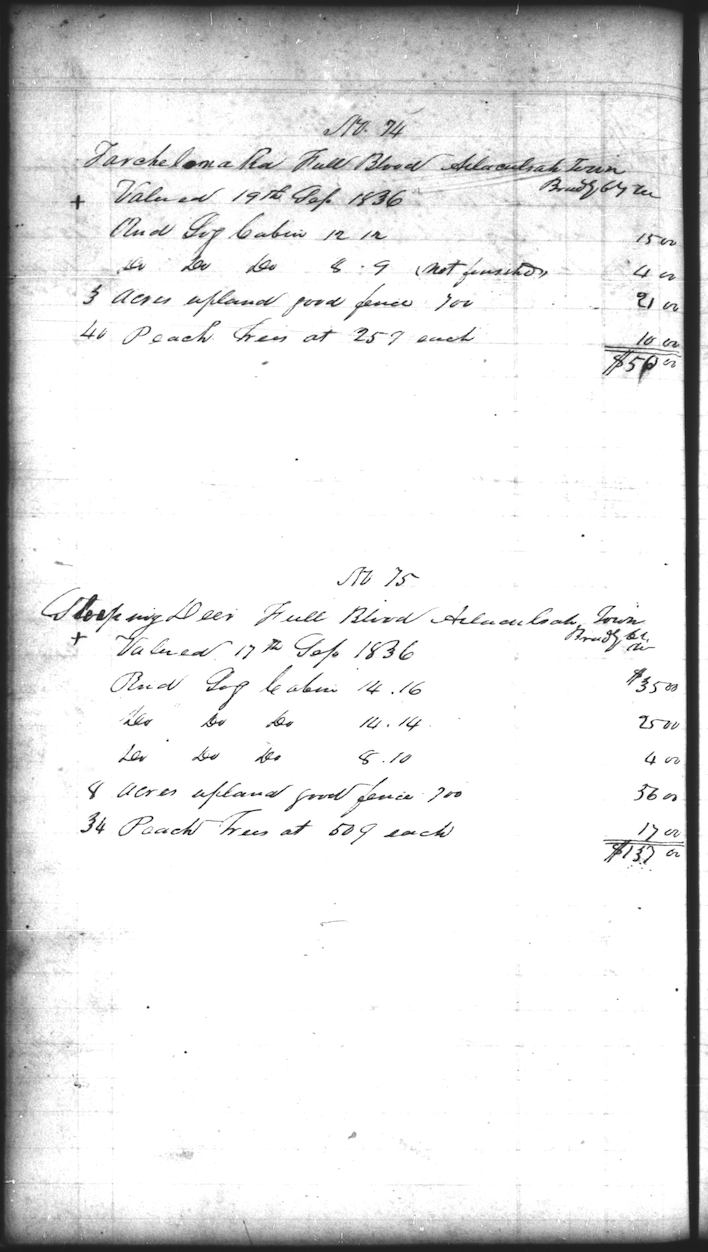 No. 74
Full Blood Town
Brady Cty Ten
+ Valued 19th Sep 1836
Rnd Log Cabin 12 12 15 00
Do Do Do 8 . 9 (not finished) 4 00
3 Acres upland good fence 700 21 00
40 Peach Trees at 25¢ each 10 00
$50 00
No 75
Sleeping Deer Full Blood Town
Brady Ct.
+ Valued 17th Sep 1836
Rnd Log Cabin 14 . 16 $35 00
Do Do Do 14 . 14 25 00
Do Do Do 8 . 10 4 00
8 Acres upland good fence 700 56 00
34 Peach Trees at 50¢ each 17 00
$137 00